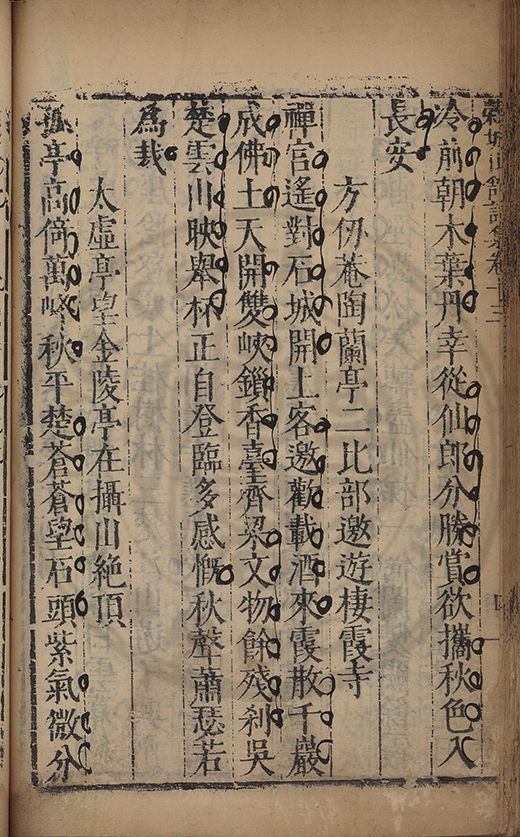 城山館詩集卷十三
冷前朝木葉丹幸從仙郎分勝賞欲攜秋色入
長安
方仞菴陶蘭亭二比部邀遊棲霞寺
禪官遙對石城開上客邀歡載酒來霞散千巖
成佛土天開雙峽鎖香臺齊梁文物餘殘刹吳
楚雲山映舉杯正自登臨多感慨秋聲蕭瑟若
為哉
太虛亭望金陵亭在攝山絕頂
孤亭高倚萬峰秋平楚蒼蒼望石頭紫氣微分